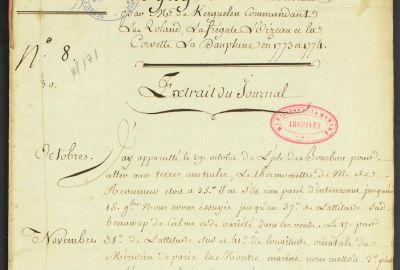 par Mr. de Kerguelen Commandant
Le Roland, La frégate L'Oizeau et la
Corvette La Dauphine en 1773 et 1774.
N.° 8.
Extrait du Journal
MINISTERE DE LA MARINE
ARCHIVES
Octobre.
J'ay apparellé le 29. octobre de L'isle de Bourbon pour
aller aux terres australes, Le thermomettre de M. de
Reaumur etoit a 25.d il ne s'hi rien passé d'interessant jusqu'au
15. 9bre Nous avons essuyée jusqu'au 37.d de Lattitude sud
beaucoup de Calme et de variété dans les vents. Le 17. par
Novembre
38.d de Lattitude sud et 61.d de longitude orientale du
Meridien de paris La Montre marine nous mettoit 2.d plus